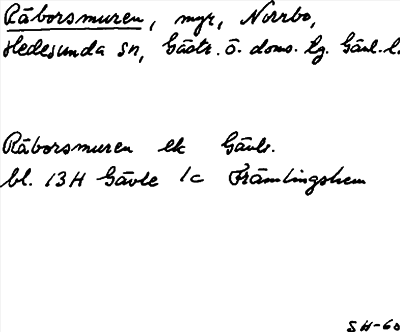 Råborsmuren, myr, Norrbo,
Hedesunda sn, Gästr. ö. doms. lg. Gävl. l.
Råborsmuren ek Gävle.
bl. 13H Gävle 1c Främlingshem
SH-60